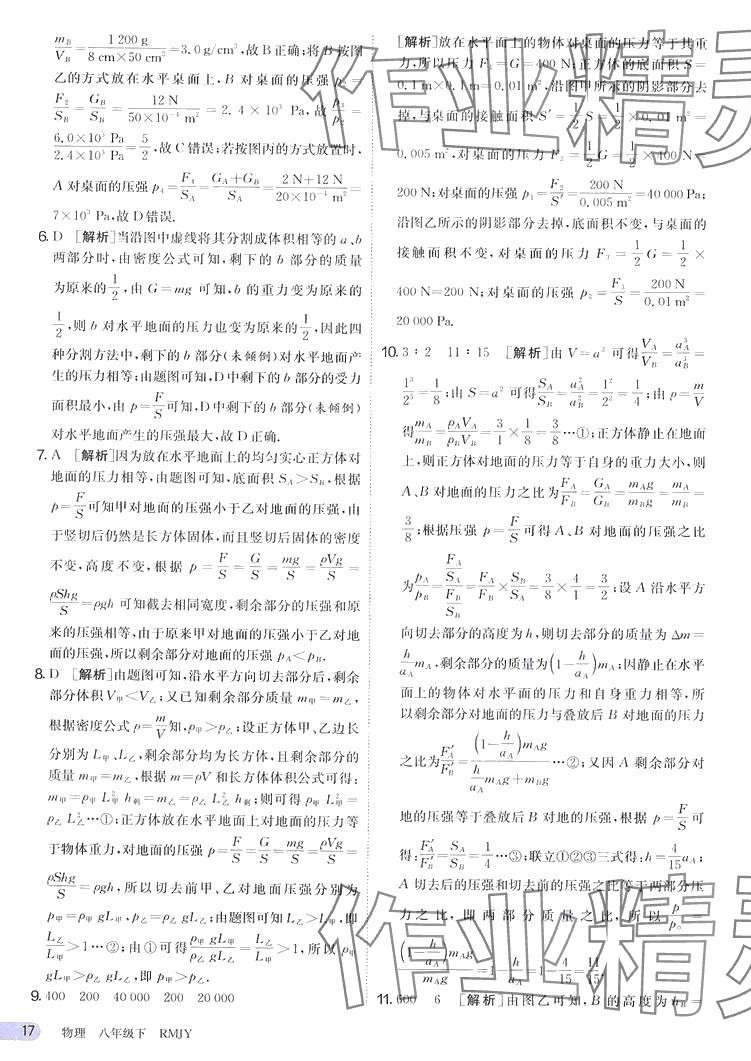 m_B/V_B = 1 200 g/(8 cm×50 cm²) = 3.0 g/cm³,故 B 正确;将 B 按图
乙的方式放在水平桌面上,B 对桌面的压强 p₂ =
F₂/S_B = G_B/S_B = 12 N/(50×10⁻⁴ m²) = 2.4×10³ Pa,故 p₃/p₂ =
6.0×10³ Pa/2.4×10³ Pa = 5/2,故 C 错误;若按图丙的方式放置时,
A 对桌面的压强 p₄ = F₄/S_A = (G_A+G_B)/S_A = (2 N+12 N)/(20×10⁻⁴ m²) =
7×10³ Pa,故 D 错误.
6. D [解析]当沿图中虚线将其分割成体积相等的 a、b
两部分时,由密度公式可知,剩下的 b 部分的质量
为原来的 1/2,由 G=mg 可知,b 的重力变为原来的
1/2,则 b 对水平地面的压力也变为原来的 1/2,因此四
种分割方法中,剩下的 b 部分(未倾倒)对水平地面产
生的压力相等;由题图可知,D 中剩下的 b 部分的受力
面积最小,由 p=F/S 可知,D 中剩下的 b 部分(未倾倒)
对水平地面产生的压强最大,故 D 正确.
7. A [解析]因为放在水平地面上的均匀实心正方体对
地面的压力相等,由题图可知,底面积 S_A>S_B,根据
p=F/S 可知甲对地面的压强小于乙对地面的压强,由
于竖切后仍然是长方体固体,而且竖切后固体的密度
不变,高度不变,根据 p = F/S = G/S = mg/S = ρVg/S =
ρShg/S = ρgh 可知截去相同宽度,剩余部分的压强和原
来的压强相等,由于原来甲对地面的压强小于乙对地
面的压强,所以剩余部分对地面的压强 p_A<p_B.
8. D [解析]由题图可知,沿水平方向切去部分后,剩余
部分体积 V甲<V乙;又已知剩余部分质量 m甲=m乙,
根据密度公式 ρ=m/V 知,ρ甲>ρ乙;设正方体甲、乙边长
分别为 L甲、L乙,剩余部分均为长方体,且剩余部分的
质量 m甲=m乙,根据 m=ρV 和长方体体积公式可得:
m甲=ρ甲 L²甲 h剩=m乙=ρ乙 L²乙 h剩;则可得 ρ甲 L²甲=
ρ乙 L²乙…①;正方体放在水平地面上对地面的压力等
于物体重力,对地面的压强 p = F/S = G/S = mg/S = ρVg/S =
ρShg/S = ρgh,所以切去前甲、乙对地面的压强分别为
p甲=ρ甲 gL甲,p乙=ρ乙 gL乙;由题图可知 L乙>L甲,即
L乙/L甲>1…②;由①可得 ρ甲 gL甲/ρ乙 gL乙 = L乙/L甲>1,所以 ρ甲
gL甲>ρ乙 gL乙,即 p甲>p乙.
9. 400 200 40 000 20 000
[解析]放在水平面上的物体对水平面的压力等于其重
力,所以压力 F₁=G=400 N;正方体的底面积 S=
0.1 m×0.1 m=0.01 m²,沿图甲所示的阴影部分去
掉,与桌面的接触面积 S′ = 1/2 S = 1/2 × 0.01 m² =
0.005 m²,对桌面的压力 F₂ = 1/2 G = 1/2 × 400 N =
200 N;对桌面的压强 p₁ = F₂/S′ = 200 N/0.005 m² = 40 000 Pa;
沿图乙所示的阴影部分去掉,底面积不变,与桌面的
接触面积不变,对桌面的压力 F₃ = 1/2 G = 1/2 ×
400 N=200 N;对桌面的压强 p₂ = F₃/S = 200 N/0.01 m² =
20 000 Pa.
10. 3∶2 11∶15 [解析]由 V=a³ 可得 V_A/V_B = a³_A/a³_B =
1³/2³ = 1/8;由 S=a² 可得 S_A/S_B = a²_A/a²_B = 1²/2² = 1/4;由 ρ=m/V
得 m_A/m_B = ρ_A V_A/ρ_B V_B = 3/1 × 1/8 = 3/8…①;正方体静止在地面
上,则正方体对地面的压力等于自身的重力大小,则
A、B 对地面的压力之比为 F_A/F_B = G_A/G_B = m_A g/m_B g = m_A/m_B =
3/8;根据压强公式 p=F/S 可得 A、B 对地面的压强之比
为 p_A/p_B = (F_A/S_A)/(F_B/S_B) = F_A/F_B × S_B/S_A = 3/8 × 4/1 = 3/2;设 A 沿水平方
向切去部分的高度为 h,则切去部分的质量为 Δm=
h/a_A m_A,剩余部分的质量为(1−h/a_A)m_A;因静止在水平
面上的物体对水平面的压力和自身重力相等,所
以剩余部分对地面的压力与叠放后 B 对地面的压力
之比为 F′_A/F′_B = (1−h/a_A)m_A g/(h/a_A m_A g+m_B g)…②;又因 A 剩余部分对
地的压强等于叠放后 B 对地的压强,根据 p=F/S 可
得:F′_A/F′_B = S_A/S_B = 1/4…③;联立①②③三式得:h=4/15 a_A;
A 切去后的压强和切去前的压强之比等于两部分压
力之比,即两部分质量之比,所以 p/p₀ =
(1−h/a_A)m_A g/m_A g = 1−h/a_A = 1−4/15 = 11/15.
11. 600 6 [解析]由图乙可知,B 的高度为 h_B=
17 物理 八年级下 RMJY
作业精灵
作业精灵